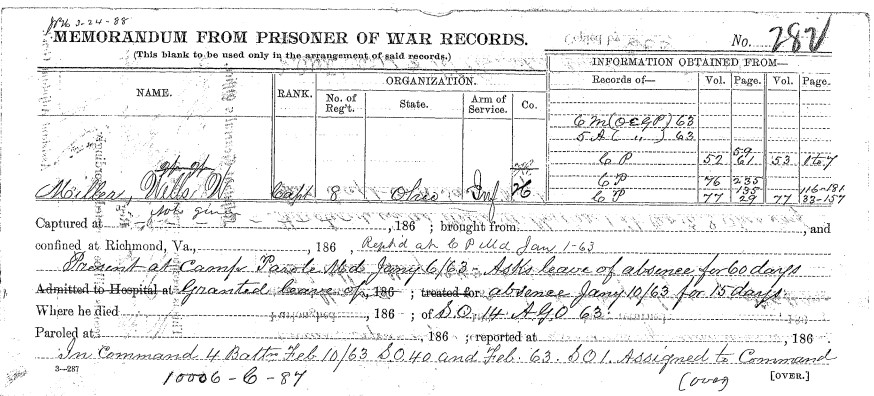 3-24-88
MEMORANDUM FROM PRISONER OF WAR RECORDS.
No. 282
(This blank to be used only in the arrangement of said records.)
NAME.
RANK.
ORGANIZATION.
No. of Reg't.
State.
Arm of Service.
Co.
INFORMATION OBTAINED FROM—
Records of—
Vol.
Page.
Vol.
Page.
6 M (O&GP) 63
5 A ( " ) 63
C P 52 59 61 53 1 to 7
C P 76 235
C P 77 135 29 77 116-181 33-157
Miller, Wills W. Capt 8 Ohio Inf H
not given
Captured at , 186 ; brought from , and
confined at Richmond, Va., , 186 , Reptd at C P Md Jan 1-63
Present at Camp Parole Md Jany 6/63 - Asks leave of absence for 60 days
Admitted to Hospital at Granted leave of , 186 ; treated for absence Jany 10/63 for 15 days
Where he died , 186 ; of S.O. 14 A.G.O 63.
Paroled at , 186 ; reported at , 186 .
In Command 4 Battn Feb 10/63 S.O. 40 and Feb. 63. S.O 1. Assigned to Command
3—287
10006-C-87
(over)
[OVER.]